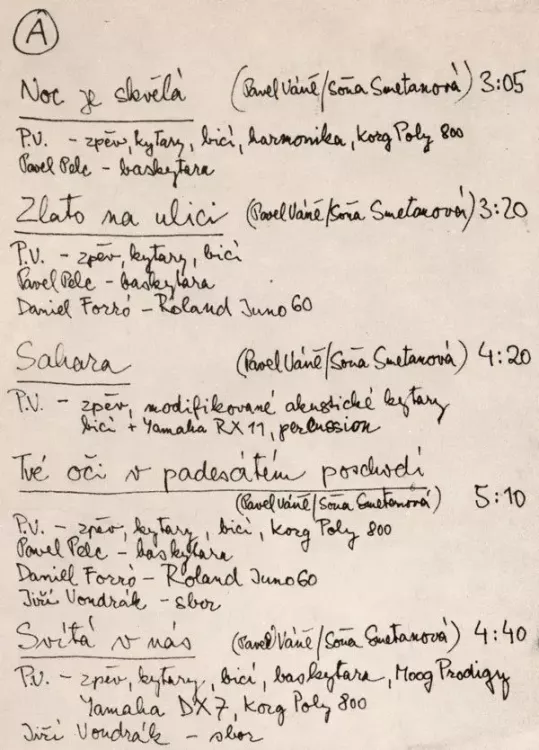 A
Noc je skvělá (Pavel Váně/Soňa Smetanová) 3:05
P.V. - zpěv, kytary, bicí, harmonika, Korg Poly 800
Pavel Pelc - baskytara
Zlato na ulici (Pavel Váně/Soňa Smetanová) 3:20
P.V. - zpěv, kytary, bicí
Pavel Pelc - baskytara
Daniel Forró - Roland Juno 60
Sahara (Pavel Váně/Soňa Smetanová) 4:20
P.V. - zpěv, modifikované akustické kytary
bicí + Yamaha RX 11, percussion
Tvé oči v padesátém poschodí
(Pavel Váně/Soňa Smetanová) 5:10
P.V. - zpěv, kytary, bicí, Korg Poly 800
Pavel Pelc - baskytara
Daniel Forró - Roland Juno 60
Jiří Vondrák - sbor
Svítá v nás (Pavel Váně/Soňa Smetanová) 4:40
P.V. - zpěv, kytary, bicí, baskytara, Moog Prodigy
Yamaha DX7, Korg Poly 800
Jiří Vondrák - sbor